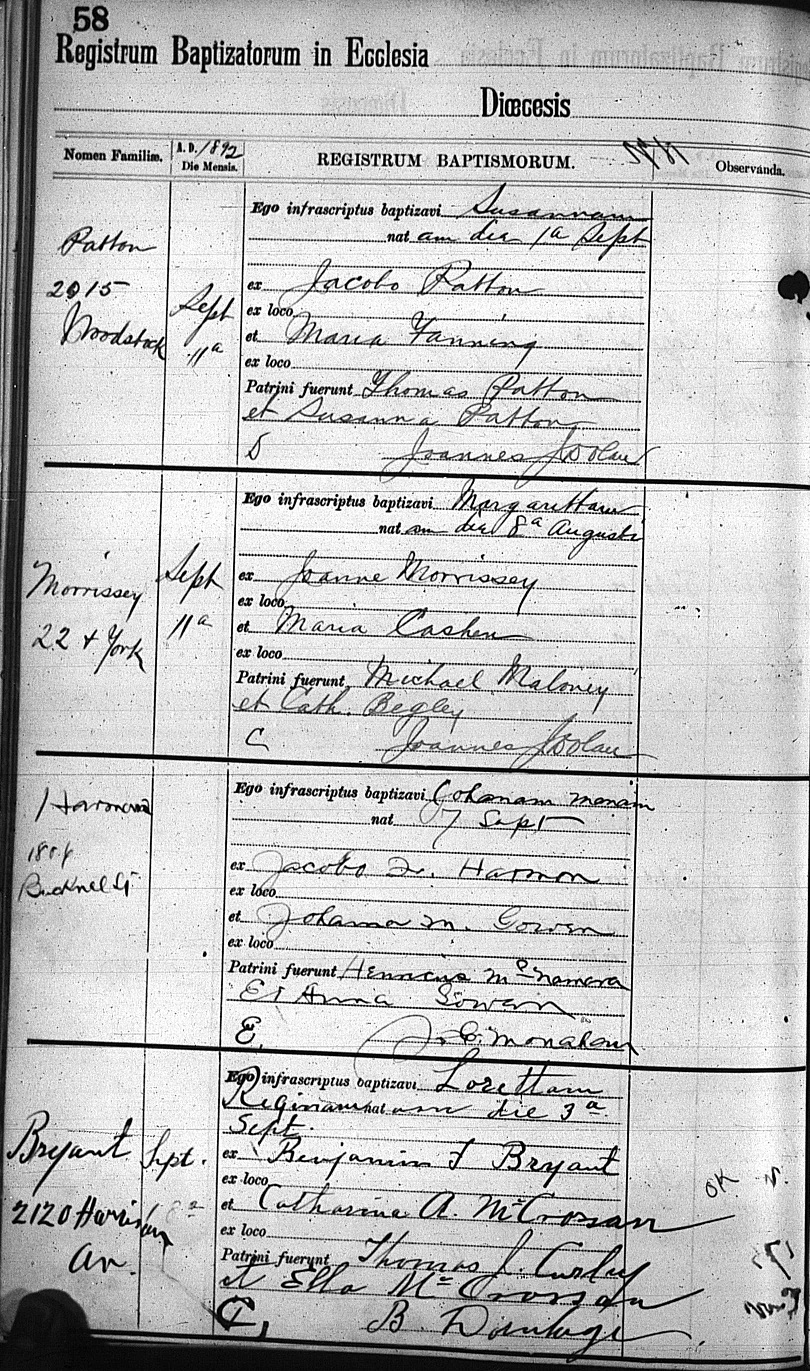 58
Registrum Baptizatorum in Ecclesia
Diœcesis
Nomen Familiæ.
A. D. 1892
Die Mensis.
REGISTRUM BAPTISMORUM.
Observanda.
Patton
2015
Woodstock
Sept
11a
Ego infrascriptus baptizavi Susannam
nat am die 1a Sept
ex Jacobo Patton
ex loco
et Maria Fanning
ex loco
Patrini fuerunt Thomas Patton
et Susanna Patton
Joannes J Dolan
Morrissey
22 + York
Sept
11a
Ego infrascriptus baptizavi Margarettam
nat am die 8a Augusti
ex Joanne Morrissey
ex loco
et Maria Cashen
ex loco
Patrini fuerunt Michael Maloney
et Cath. Begley
C Joannes J Dolan
Bucknell St
Ego infrascriptus baptizavi Johanam
nat 7 Sept
ex Jacobo Harmon
ex loco
et Johanna M. Gowen
ex loco
Patrini fuerunt Henricus McNamara
Et Anna Gowen
E. J. C. Monahan
Bryant
2120 Harrison
Av.
Sept. 8a
Ego infrascriptus baptizavi Lorettam
Reginam nat am die 3a
Sept.
ex Benjamin F Bryant
ex loco
et Catharina A. McCrossan
ex loco
Patrini fuerunt Thomas J. Curley
et Ella McCrossan
C, B.
OK